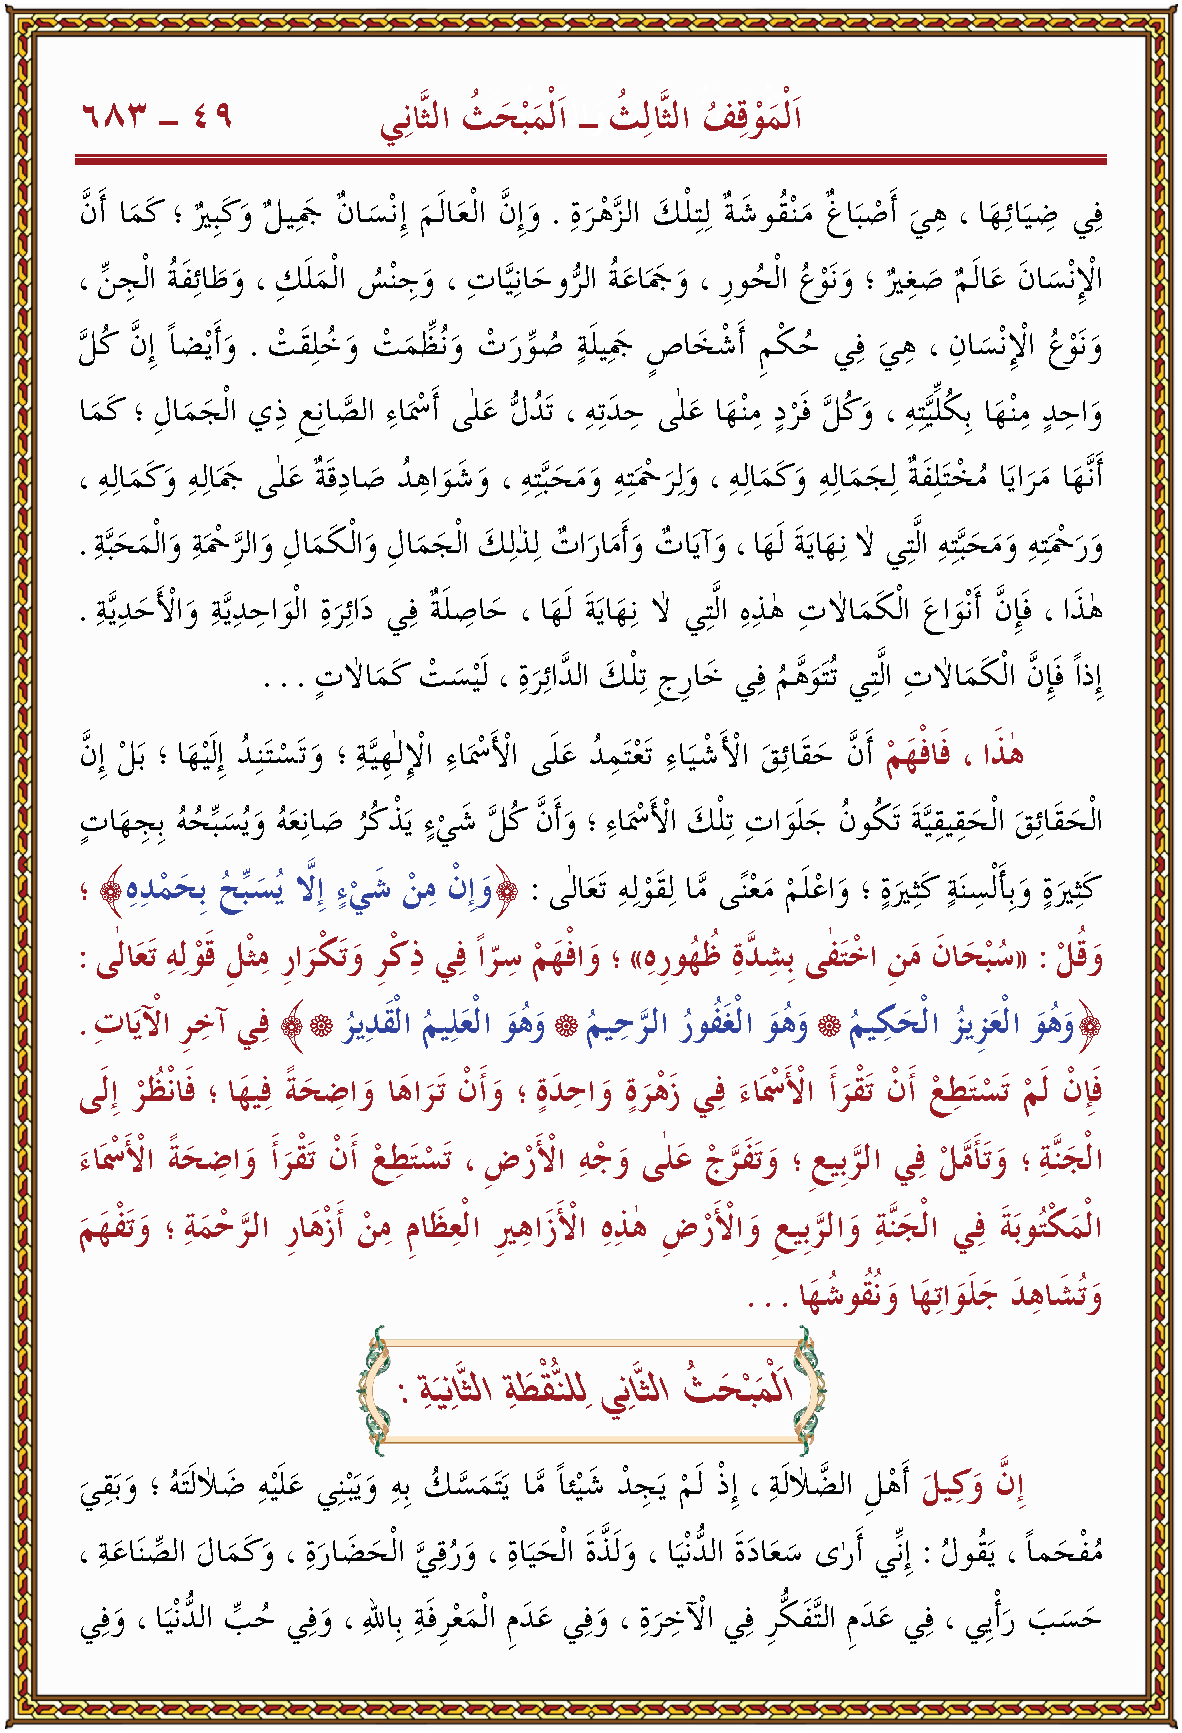 اَلْمَوْقِفُ الثَّالِثُ ـ اَلْمَبْحَثُ الثَّانِي ٤٩ ـ ٦٨٣
فِي ضِيَائِهَا ، هِيَ أَصْبَاغٌ مَنْقُوشَةٌ لِتِلْكَ الزَّهْرَةِ . وَإِنَّ الْعَالَمَ إِنْسَانٌ جَمِيلٌ وَكَبِيرٌ ؛ كَمَا أَنَّ
الْإِنْسَانَ عَالَمٌ صَغِيرٌ ؛ وَنَوْعُ الْحُورِ ، وَجَمَاعَةُ الرُّوحَانِيَّاتِ ، وَجِنْسُ الْمَلَكِ ، وَطَائِفَةُ الْجِنِّ ،
وَنَوْعُ الْإِنْسَانِ ، هِيَ فِي حُكْمِ أَشْخَاصٍ جَمِيلَةٍ صُوِّرَتْ وَنُظِّمَتْ وَخُلِقَتْ . وَأَيْضاً إِنَّ كُلَّ
وَاحِدٍ مِنْهَا بِكُلِّيَّتِهِ ، وَكُلَّ فَرْدٍ مِنْهَا عَلٰى حِدَتِهِ ، تَدُلُّ عَلٰى أَسْمَاءِ الصَّانِعِ ذِي الْجَمَالِ ؛ كَمَا
أَنَّهَا مَرَايَا مُخْتَلِفَةٌ لِجَمَالِهِ وَكَمَالِهِ ، وَلِرَحْمَتِهِ وَمَحَبَّتِهِ ، وَشَوَاهِدُ صَادِقَةٌ عَلٰى جَمَالِهِ وَكَمَالِهِ ،
وَرَحْمَتِهِ وَمَحَبَّتِهِ الَّتِي لَا نِهَايَةَ لَهَا ، وَآيَاتٌ وَأَمَارَاتٌ لِذٰلِكَ الْجَمَالِ وَالْكَمَالِ وَالرَّحْمَةِ وَالْمَحَبَّةِ .
هٰذَا ، فَإِنَّ أَنْوَاعَ الْكَمَالَاتِ هٰذِهِ الَّتِي لَا نِهَايَةَ لَهَا ، حَاصِلَةٌ فِي دَائِرَةِ الْوَاحِدِيَّةِ وَالْأَحَدِيَّةِ .
إِذاً فَإِنَّ الْكَمَالَاتِ الَّتِي تُتَوَهَّمُ فِي خَارِجِ تِلْكَ الدَّائِرَةِ ، لَيْسَتْ كَمَالَاتٍ . . .
هٰذَا ، فَافْهَمْ أَنَّ حَقَائِقَ الْأَشْيَاءِ تَعْتَمِدُ عَلَى الْأَسْمَاءِ الْإِلٰهِيَّةِ ؛ وَتَسْتَنِدُ إِلَيْهَا ؛ بَلْ إِنَّ
الْحَقَائِقَ الْحَقِيقِيَّةَ تَكُونُ جَلَوَاتِ تِلْكَ الْأَسْمَاءِ ؛ وَأَنَّ كُلَّ شَيْءٍ يَذْكُرُ صَانِعَهُ وَيُسَبِّحُهُ بِجِهَاتٍ
كَثِيرَةٍ وَبِأَلْسِنَةٍ كَثِيرَةٍ ؛ وَاعْلَمْ مَعْنًى مَّا لِقَوْلِهِ تَعَالٰى : ﴿وَإِنْ مِنْ شَيْءٍ إِلَّا يُسَبِّحُ بِحَمْدِهِ﴾ ؛
وَقُلْ : «سُبْحَانَ مَنِ اخْتَفٰى بِشِدَّةِ ظُهُورِهِ» ؛ وَافْهَمْ سِرّاً فِي ذِكْرِ وَتَكْرَارِ مِثْلِ قَوْلِهِ تَعَالٰى :
﴿وَهُوَ الْعَزِيزُ الْحَكِيمُ ۞ وَهُوَ الْغَفُورُ الرَّحِيمُ ۞ وَهُوَ الْعَلِيمُ الْقَدِيرُ ۞﴾ فِي آخِرِ الْآيَاتِ .
فَإِنْ لَمْ تَسْتَطِعْ أَنْ تَقْرَأَ الْأَسْمَاءَ فِي زَهْرَةٍ وَاحِدَةٍ ؛ وَأَنْ تَرَاهَا وَاضِحَةً فِيهَا ؛ فَانْظُرْ إِلَى
الْجَنَّةِ ؛ وَتَأَمَّلْ فِي الرَّبِيعِ ؛ وَتَفَرَّجْ عَلٰى وَجْهِ الْأَرْضِ ، تَسْتَطِعْ أَنْ تَقْرَأَ وَاضِحَةً الْأَسْمَاءَ
الْمَكْتُوبَةَ فِي الْجَنَّةِ وَالرَّبِيعِ وَالْأَرْضِ هٰذِهِ الْأَزَاهِيرِ الْعِظَامِ مِنْ أَزْهَارِ الرَّحْمَةِ ؛ وَتَفْهَمَ
وَتُشَاهِدَ جَلَوَاتِهَا وَنُقُوشَهَا . . .
اَلْمَبْحَثُ الثَّانِي لِلنُّقْطَةِ الثَّانِيَةِ :
إِنَّ وَكِيلَ أَهْلِ الضَّلَالَةِ ، إِذْ لَمْ يَجِدْ شَيْئاً مَّا يَتَمَسَّكُ بِهِ وَيَبْنِي عَلَيْهِ ضَلَالَتَهُ ؛ وَبَقِيَ
مُفْحَماً ، يَقُولُ : إِنِّي أَرٰى سَعَادَةَ الدُّنْيَا ، وَلَذَّةَ الْحَيَاةِ ، وَرُقِيَّ الْحَضَارَةِ ، وَكَمَالَ الصِّنَاعَةِ ،
حَسَبَ رَأْيِي ، فِي عَدَمِ التَّفَكُّرِ فِي الْآخِرَةِ ، وَفِي عَدَمِ الْمَعْرِفَةِ بِاللهِ ، وَفِي حُبِّ الدُّنْيَا ، وَفِي